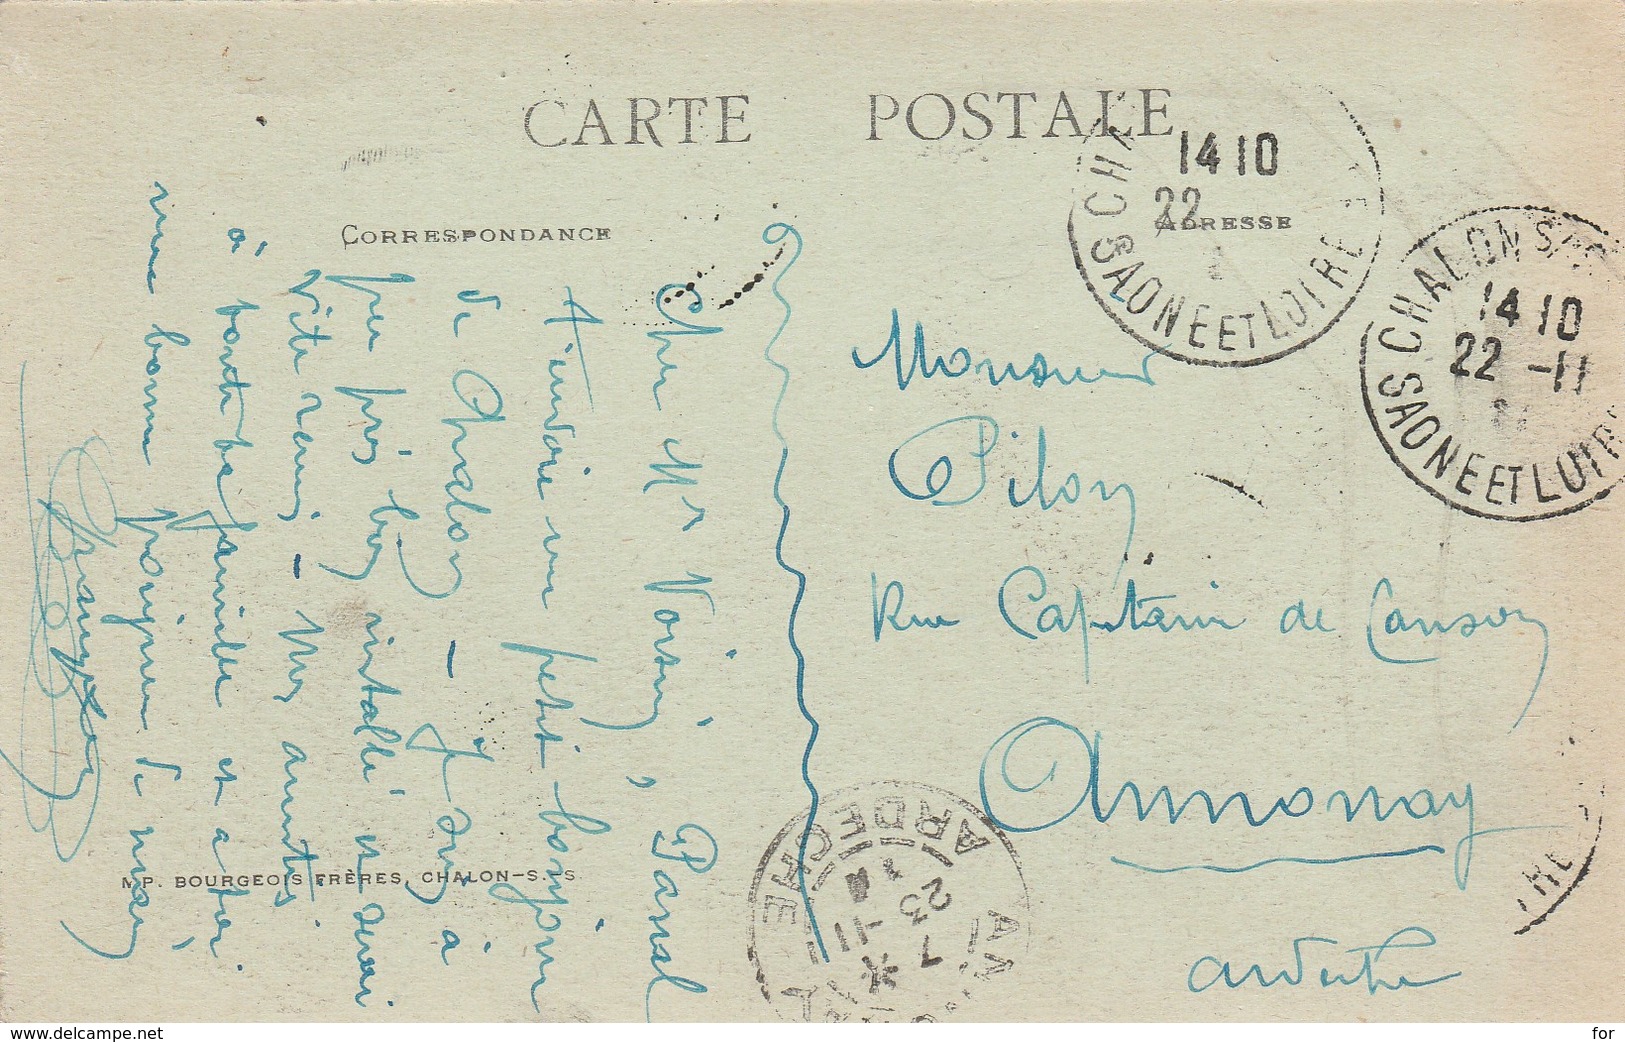 CARTE POSTALE
CORRESPONDANCE
ADRESSE
Cher Mr Voisin, Pascal
t'envoie un petit bonjour
de Chalon — Je suis à
peu près bien installé et serai
vite remis — Mes amitiés
à toute ta famille et à toi
une bonne poignée de main
Monsieur
Pilon
Rue Capitaine de Canson
Annonay
Ardèche
CHA
14 10
22
SAONE ET LOIRE
CHALON S
14 10
22 -11
SAONE ET LOIRE
ARDECHE
23 -11
7
M P. BOURGEOIS FRÈRES, CHALON-S.-S.
www.delcampe.net
for